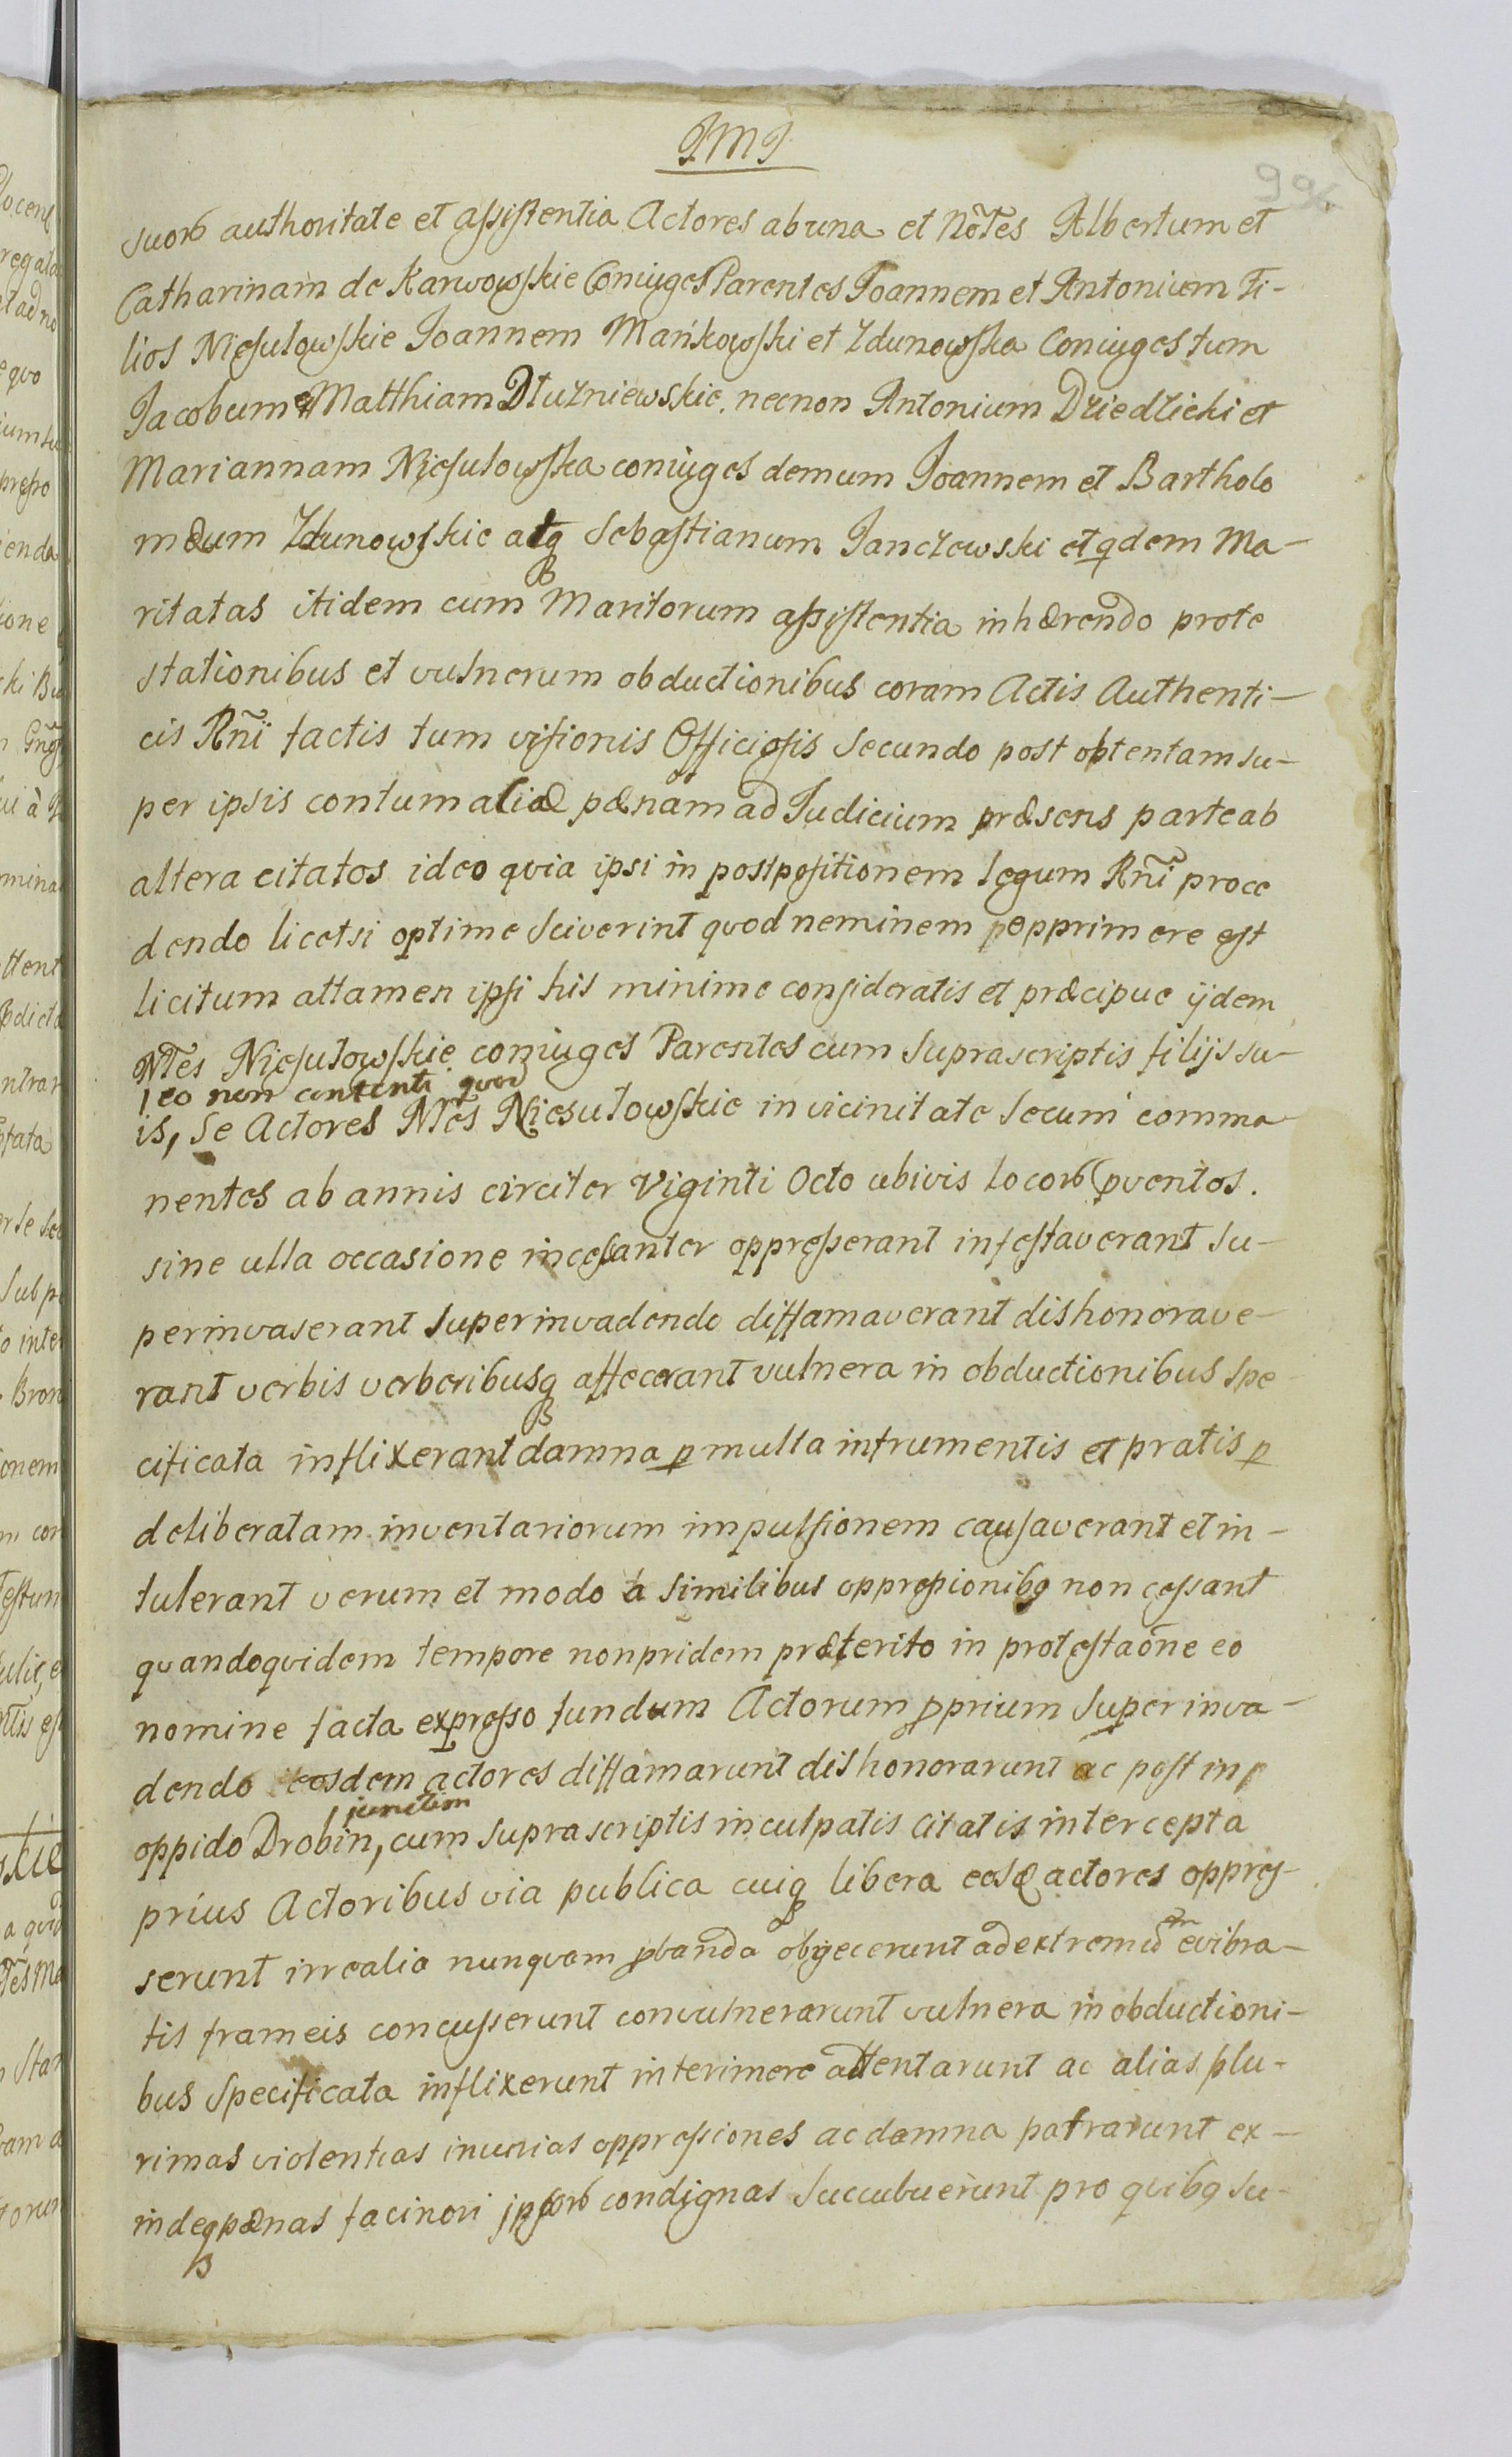 JMJ
99.
suorб authoritate et assistentia Actores ab una et Nõtes Albertum et
Catharinam de Karwowskie Coniuges Parentes Joannem et Antonium Fi-
lios Niesułowskie Joannem Mańkowski et Zdunowska Coniuges tum
Jacobum et Matthiam Dłużniewskie, necnon Antonium Dziedzicki et
Mariannam Niesułowska coniuges demum Joannem et Bartholo
mæum Zdunowskie atq Sebastianum Janczewski et qdem Ma-
ritatas itidem cum Maritorum assistentia inhærendo prote
stationibus et vulnerum obductionibus coram Actis Authenti-
cis Rñi factis tum visionis Officiosis Secundo post obtentam su-
per ipsis contumaciæ pænam ad Judicium præsens parte ab
altera citatos ideo quia ipsi in postpositionem legum Rñi proce
dendo licetsi optime sciverint quod neminem opprimere est
licitum attamen ipsi his minime consideratis et præcipue ijdem
Ntes Niesułowskie coniuges Parentes cum suprascriptis filijs su-
eo non contenti quod
is, se Actores Ntes Niesułowskie in vicinitate secum comma
nentes ab annis circiter Viginti Octo ubivis locorб pventos.
sine ulla occasione incessanter oppresserant infestaverant su-
perinvaserant superinvadendo diffamaverant dishonorave-
rant verbis verberibusq affecerant vulnera in obductionibus spe
cificata inflixerant damna p multa infrumentis et pratis p
deliberatam inventariorum impulsionem causaverant et in-
tulerant verum et modo à similibus oppressionibq non cessant
quandoquidem tempore nonpridem præterito in protestaõne eo
nomine facta expresso fundum Actorum pprium superinva-
dendo eosdem actores diffamarunt dishonorarunt ac post in
junctim
oppido Drobin, cum suprascriptis inculpatis citatis intercepta
prius Actoribus via publica cuiq libera eosd actores oppres-
serunt irrealia nunquam pbanda obijecerunt ad extremũ evibra-
tis frameis concusserunt convulnerarunt vulnera in obductioni-
bus specificata inflixerunt interimere attentarunt ac alias plu-
rimas violentias iniurias oppressiones ac damna patrarunt ex-
indeq pænas facinori ipsorб condignas succubuerunt pro quibq su-